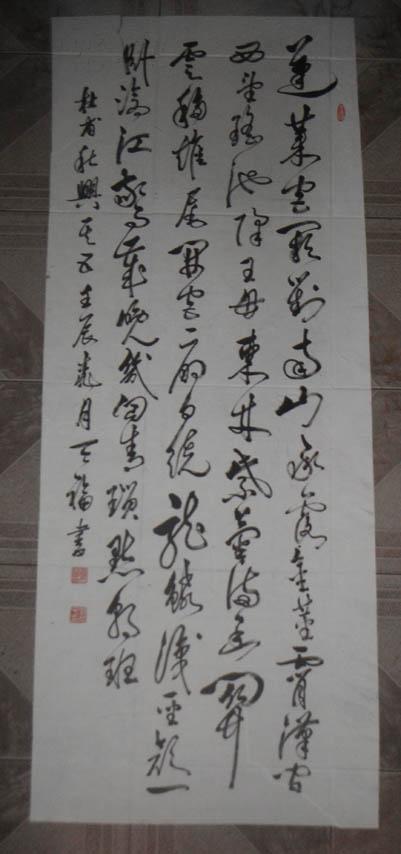 蓬萊宮闕對南山承露金莖霄漢間
西望瑤池降王母東來紫氣滿函關
雲移雉尾開宮扇日繞龍鱗識聖顏一
臥滄江驚歲晚幾回青瑣點朝班
杜甫秋興其五壬辰月福書